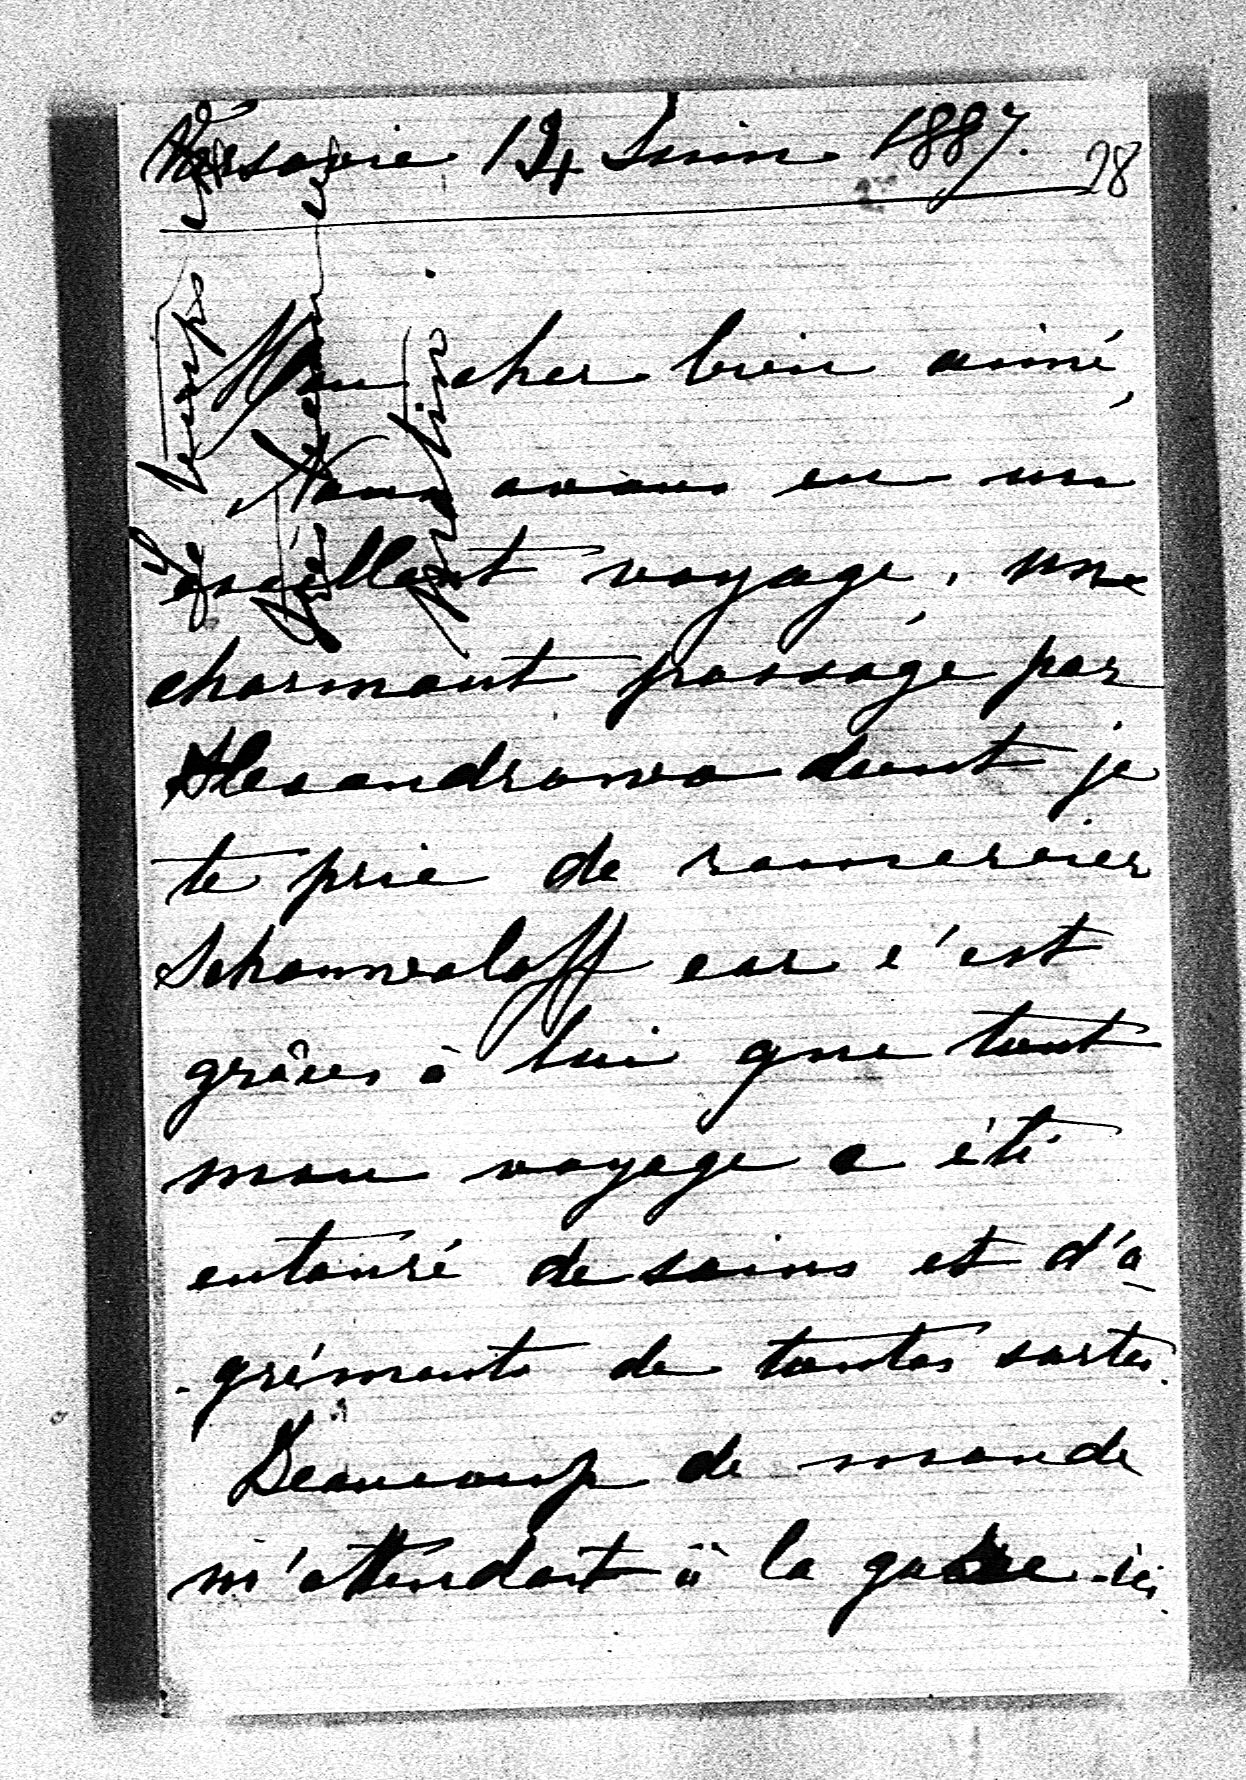 Varsovie 14 Juin 1887.
28
Mon cher bien aimé,
Nous avons eu un
excellent voyage, un
charmant passage par
Alexandrowo dont je
te prie de remercier
Schouvaloff car c'est
grâces à lui que tout
mon voyage a été
entouré de soins et d'a
-gréments de toutes sortes.
Beaucoup de monde
m'attendait à la gare ici
temps